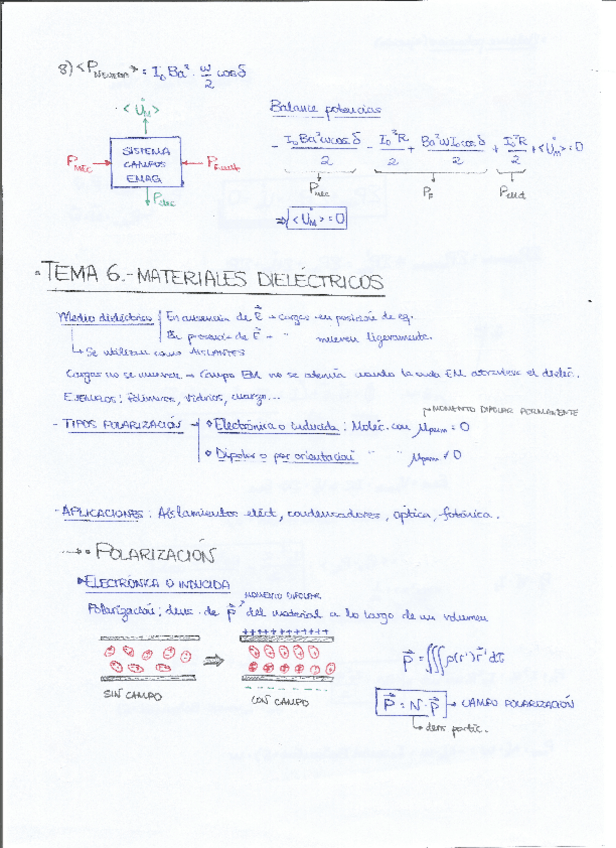 8) <P_Newton> = I₀Ba²·ω/2 cosδ
<U̇_M>
Balance potencias
SISTEMA
CAMPOS
EMAG
P_MEC
P_Fuent
P_disc
- I₀Ba²ωcosδ/2 - I₀²R/2 + Ba²ωI₀cosδ/2 + I₀²R/2 + <U̇_M> = 0
P_Mec P_F
⇒ <U̇_M> = 0
TEMA 6.- MATERIALES DIELÉCTRICOS
Medio dieléctrico | En ausencia de E⃗ → cargas en posición de eq.
En presencia de E⃗ → " mueven ligeramente.
↳ Se utilizan como AISLANTES
Cargas no se mueven → Campo EM no se atenúa cuando la onda EM atraviesa el dieléc.
EJEMPLOS: Polímeros, vidrios, cuarzo...
→ MOMENTO DIPOLAR PERMANENTE
- TIPOS POLARIZACIÓN → Electrónica o inducida: Moléc. con μ_perm = 0
Dipolar o por orientación " " μ_perm ≠ 0
- APLICACIONES: Aislamientos eléct, condensadores, óptica, fotónica.
POLARIZACIÓN
ELECTRÓNICA O INDUCIDA
MOMENTO DIPOLAR
Polarización: dens. de p⃗ del material a lo largo de un volumen
++++++++++
⇒
p⃗ = ∭ρ(r')r⃗'dτ
SIN CAMPO
CON CAMPO
P⃗ = N·p⃗ → CAMPO POLARIZACIÓN
↳ dens partíc.